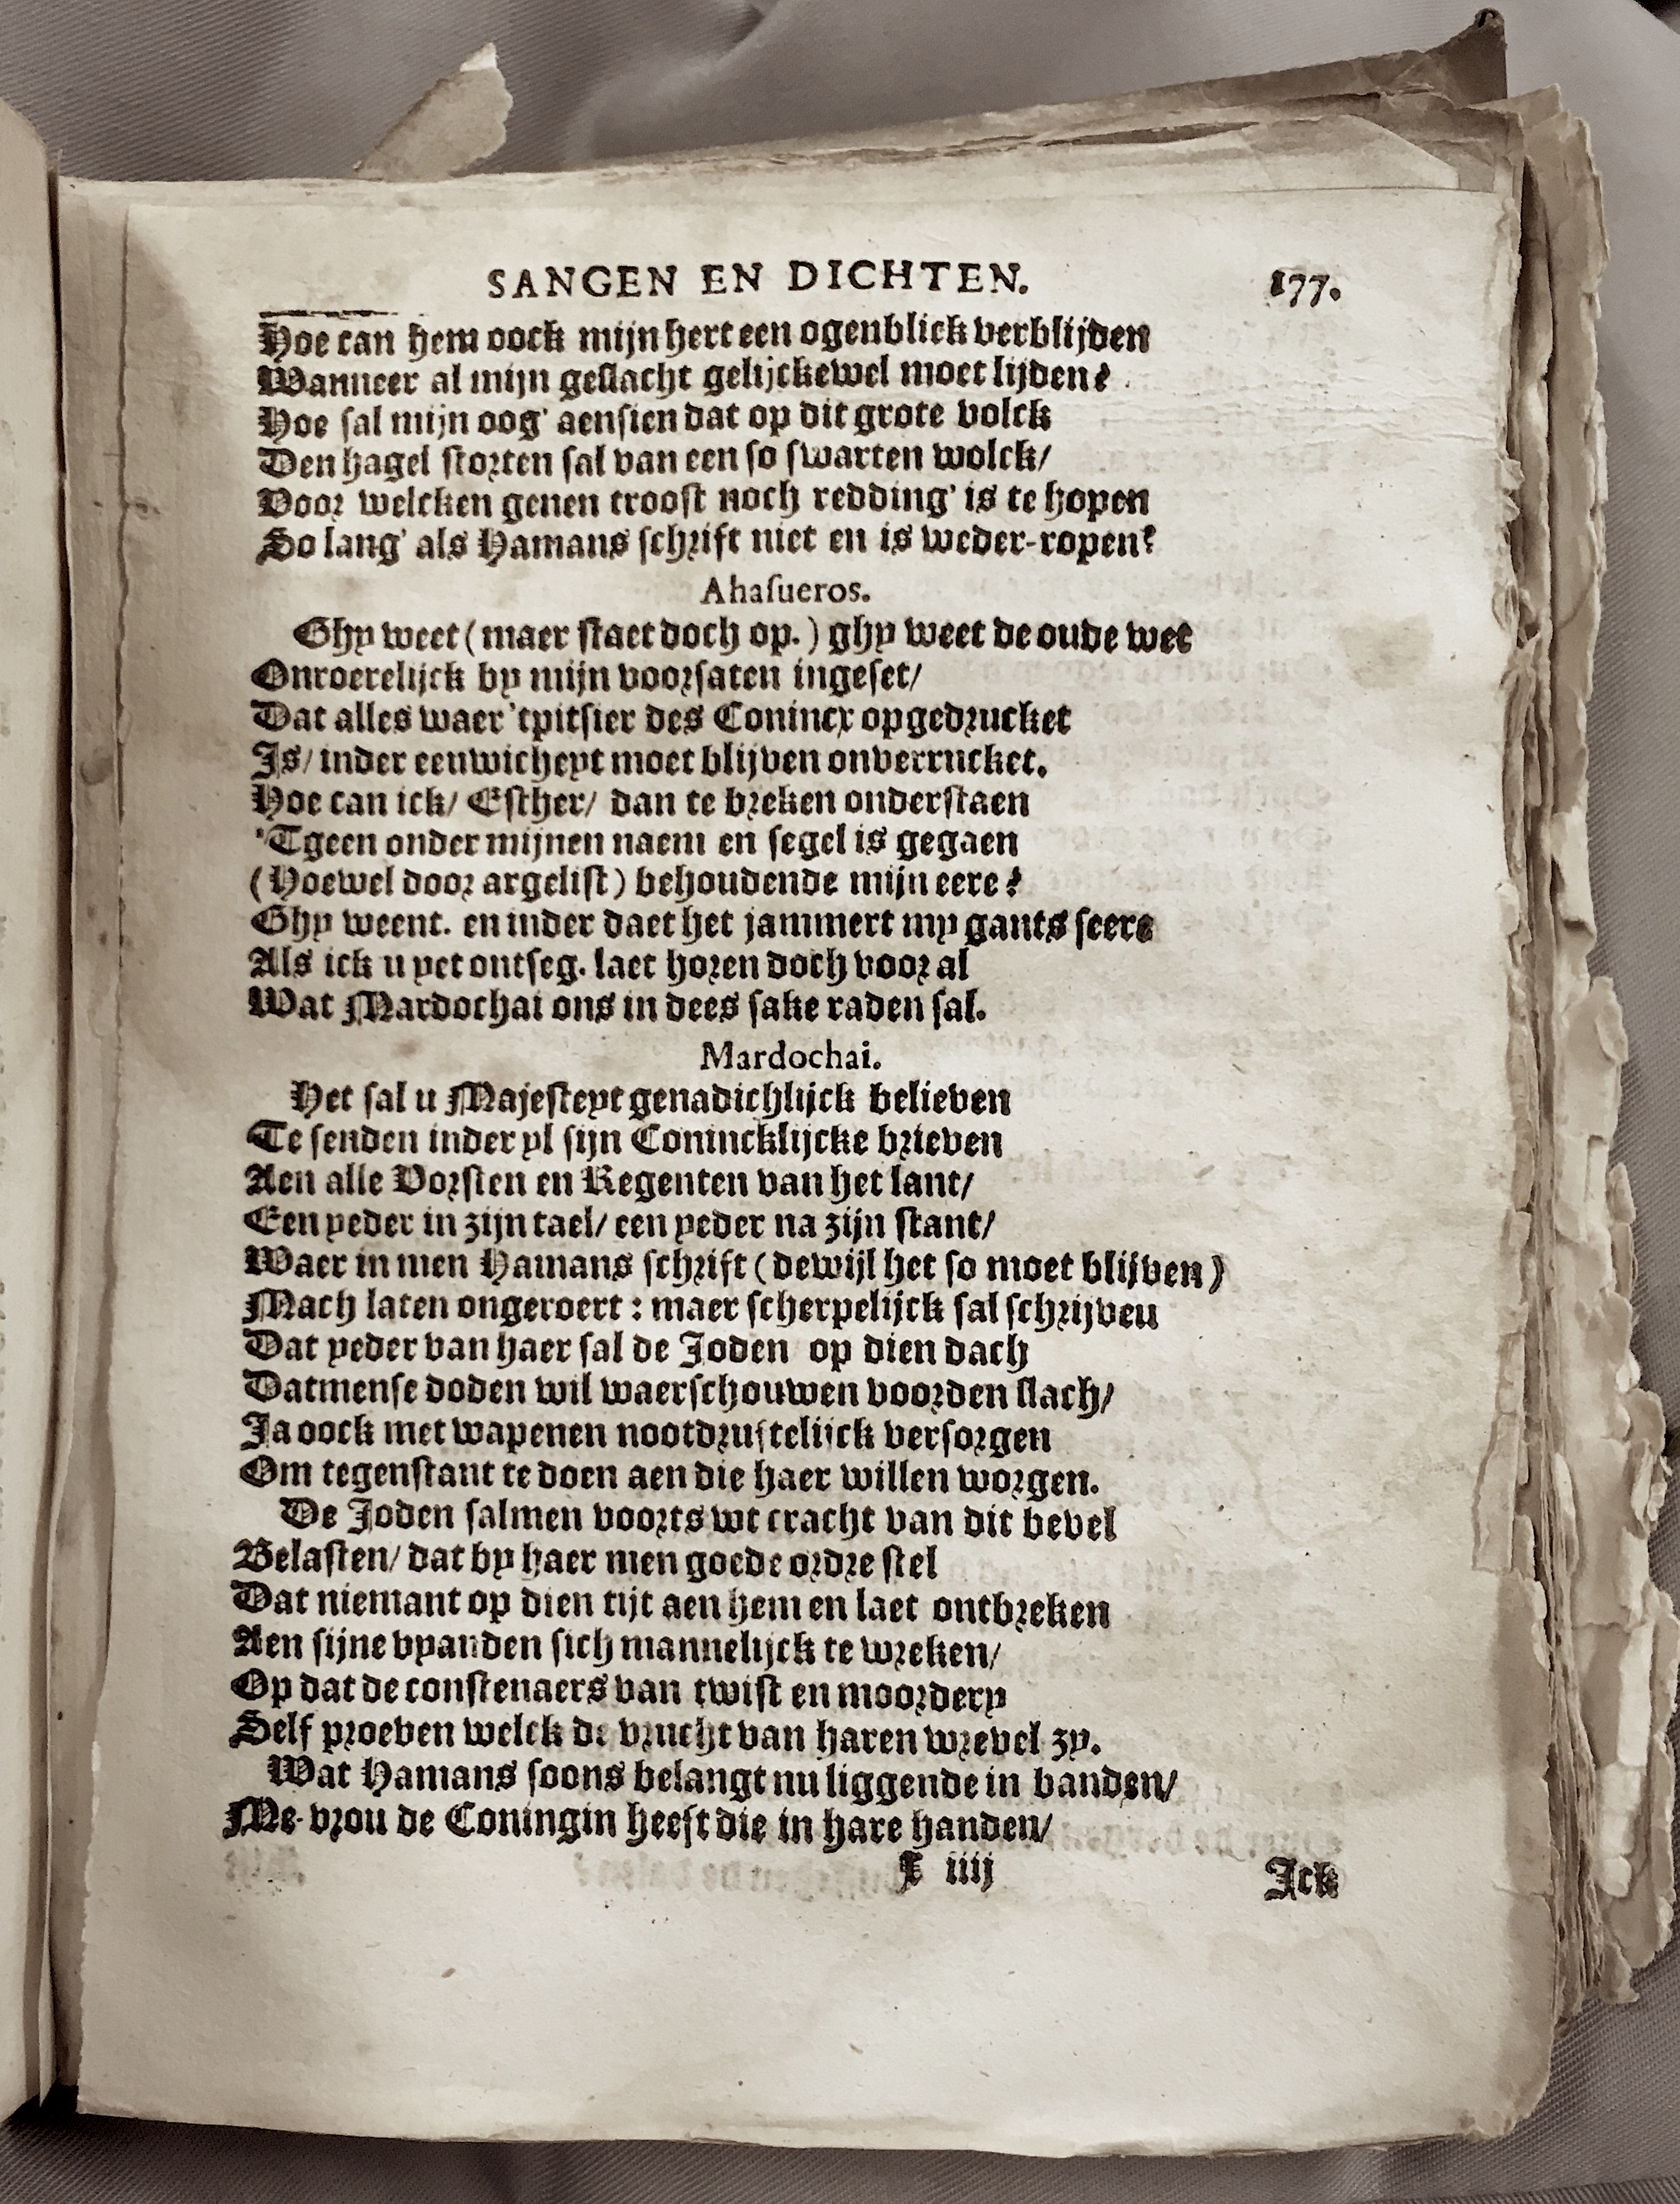 SANGEN EN DICHTEN. 177.
Hoe can hem oock mijn hert een ogenblick verblijden
Wanneer al mijn geslacht gelijckewel moet lijden?
Hoe sal mijn oog' aensien dat op dit grote volck
Den hagel storten sal van een so swarten wolck/
Voor welcken genen troost noch redding' is te hopen
So lang' als Hamans schrift niet en is weder-ropen?
Ahasueros.
Ghy weet (maer staet doch op.) ghy weet de oude wet
Onroerelijck by mijn voorsaten ingeset/
Dat alles waer 'tpitsier des Conincx opgedrucket
Is/ inder eeuwicheyt moet blijven onverrucket.
Hoe can ick/ Esther/ dan te breken onderstaen
'Tgeen onder mijnen naem en segel is gegaen
(Hoewel door argelist) behoudende mijn eere?
Ghy weent. en inder daet het jammert my gants seere
Als ick u yet ontseg. laet horen doch voor al
Wat Mardochai ons in dees sake raden sal.
Mardochai.
Het sal u Majesteyt genadichlijck believen
Te senden inder yl sijn Conincklijcke brieven
Aen alle Vorsten en Regenten van het lant/
Een yeder in zijn tael/ een yeder na zijn stant/
Waer in men Hamans schrift (dewijl het so moet blijven)
Mach laten ongeroert : maer scherpelijck sal schrijven
Dat yeder van haer sal de Joden op dien dach
Datmense doden wil waerschouwen voorden slach/
Ja oock met wapenen nootdruftelijck versorgen
Om tegenstant te doen aen die haer willen worgen.
De Joden salmen voorts wt cracht van dit bevel
Belasten/ dat by haer men goede ordre stel
Dat niemant op dien tijt aen hem en laet ontbreken
Aen sijne vyanden sich mannelijck te wreken/
Op dat de constenaers van twist en moordery
Self proeven welck de vrucht van haren wrevel zy.
Wat Hamans soons belangt nu liggende in banden/
Me-vrou de Coningin heeft die in hare handen/
I iiij Ick